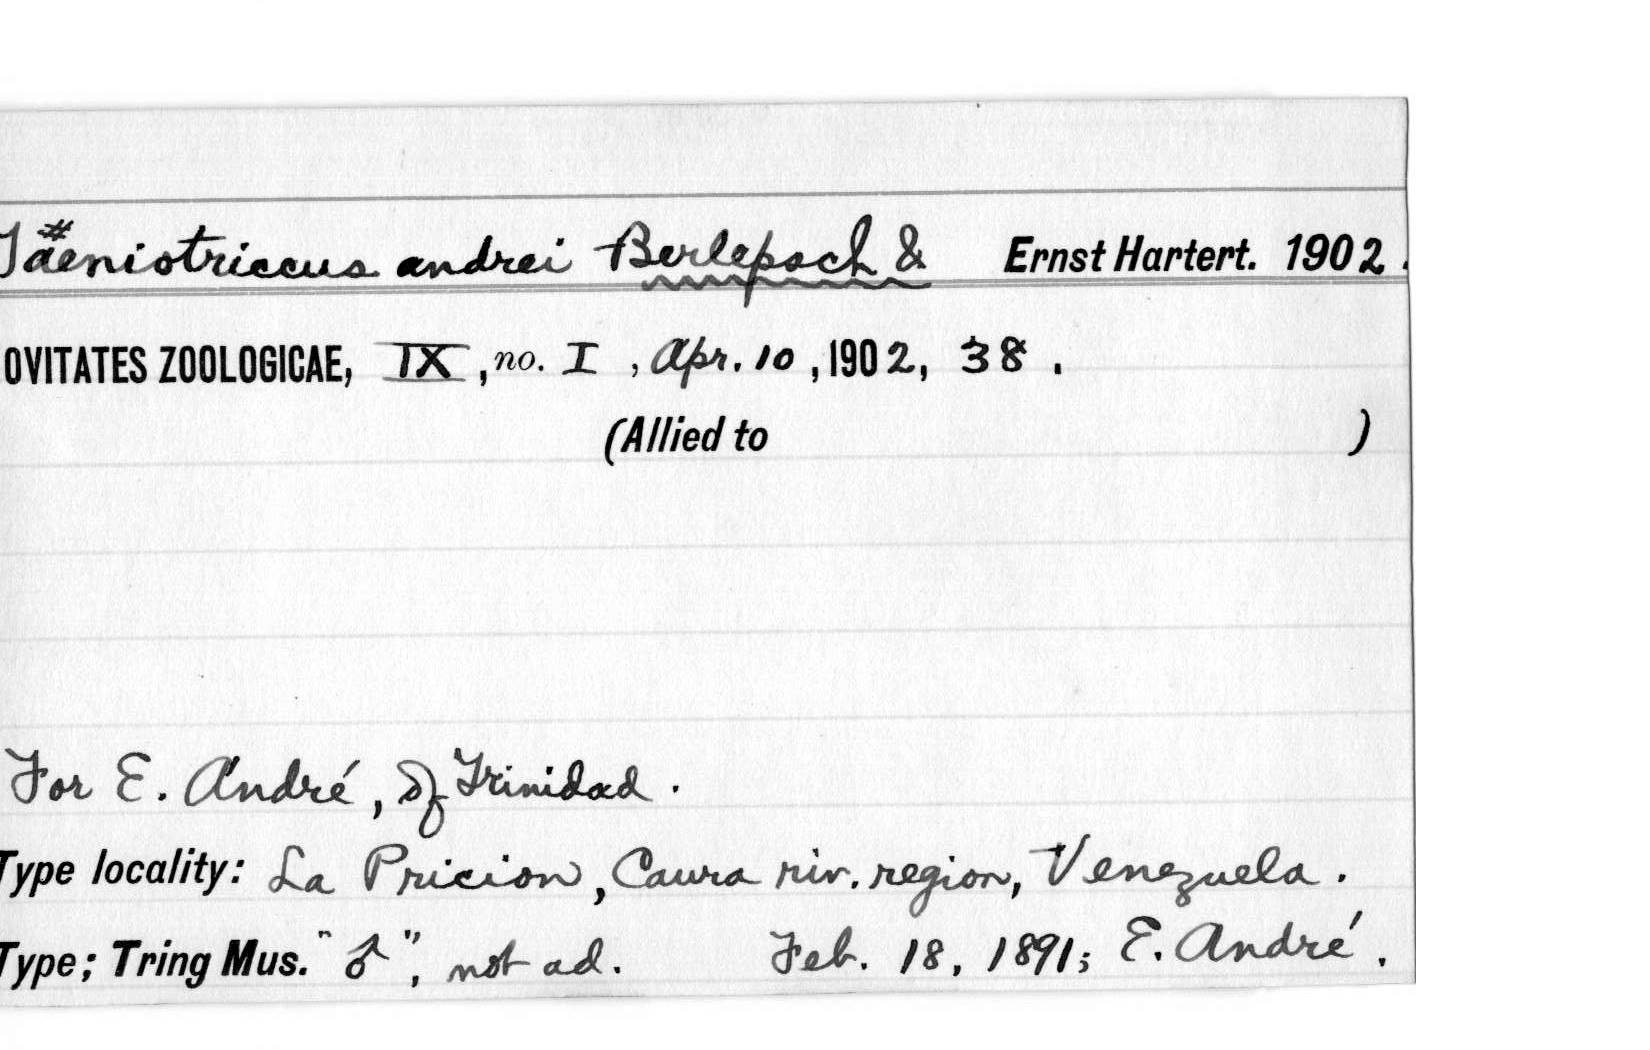 Taeniotriccus andrei Berlepsch & Ernst Hartert. 1902.
OVITATES ZOOLOGICAE, IX, no. I, Apr. 10, 1902, 38.
(Allied to )
For E. André, of Trinidad.
Type locality: La Pricion, Caura riv. region, Venezuela.
Type; Tring Mus. "♂", not ad. Feb. 18, 1891; E. André.